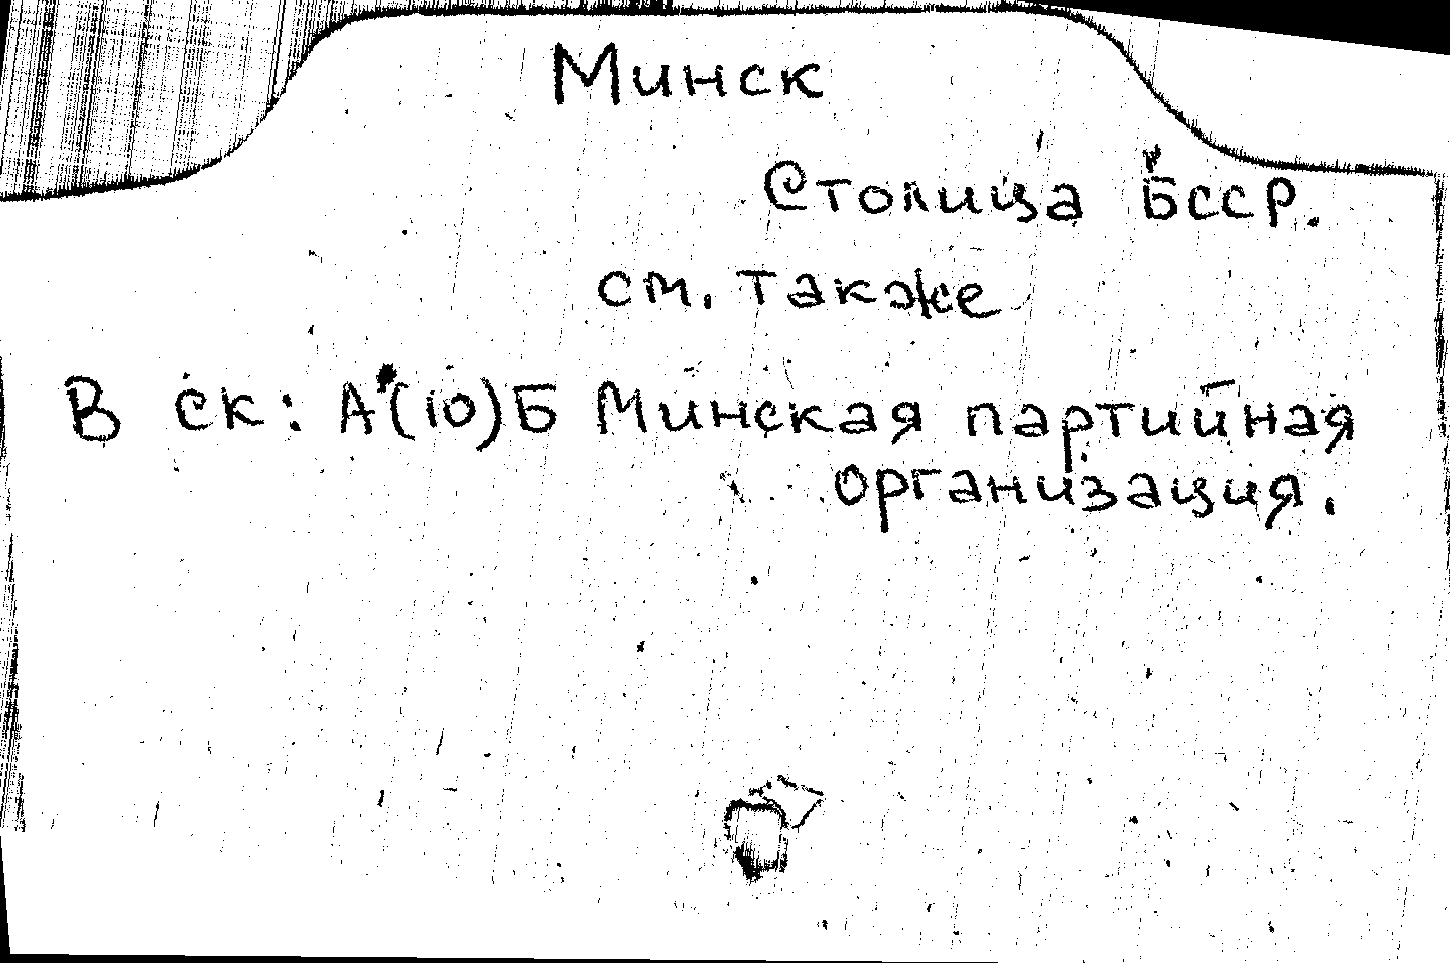 Минск
Столица БССР.
см. также
В ск: А(10)Б Минская партийная
организация.